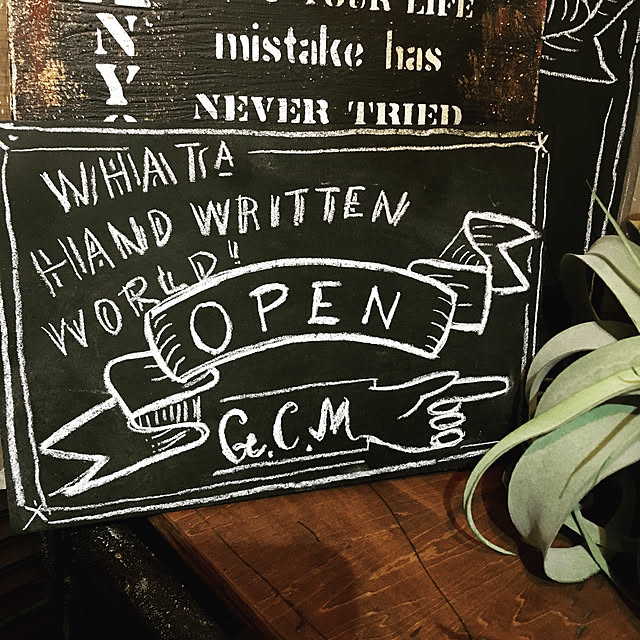 YOUR LIFE
mistake has
NEVER TRIED
N
Y
WHAT A
HAND WRITTEN
WORLD"
OPEN
G.C.M